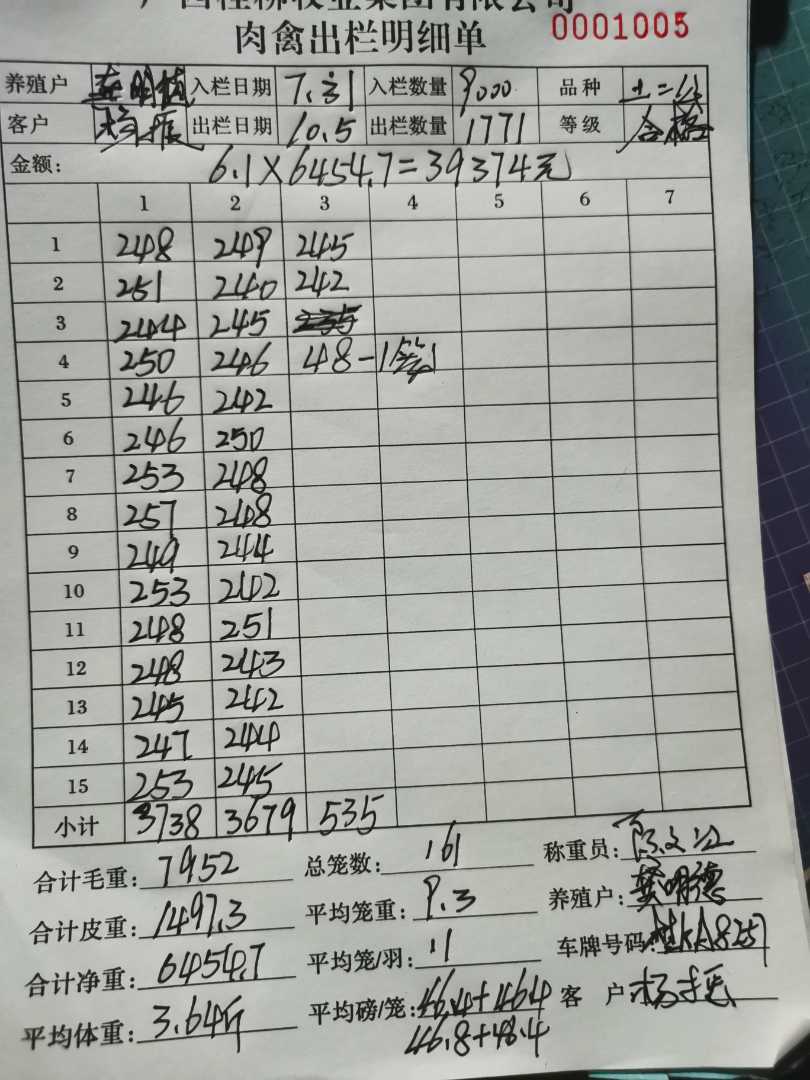 广西桂柳牧业集团有限公司
肉禽出栏明细单 0001005
养殖户 龚明德 入栏日期 7.31 入栏数量 9000 品种 土二
客户 杨振 出栏日期 10.5 出栏数量 1771 等级 合格
金额: 6.1×6454.7=39374元
1 2 3 4 5 6 7
1 248 249 245
2 251 240 242
3 244 245 235
4 250 246 48-1
5 246 242
6 246 250
7 253 248
8 257 248
9 249 244
10 253 242
11 248 251
12 248 243
13 245 242
14 247 244
15 253 245
小计 3738 3679 535
合计毛重: 7952 总笼数: 161 称重员:
合计皮重: 1497.3 平均笼重: 9.3 养殖户: 龚明德
合计净重: 6454.7 平均笼/羽: 11 车牌号码:
平均体重: 3.64斤 平均磅/笼: 46.4+46.4 客户 杨振
46.8+46.4